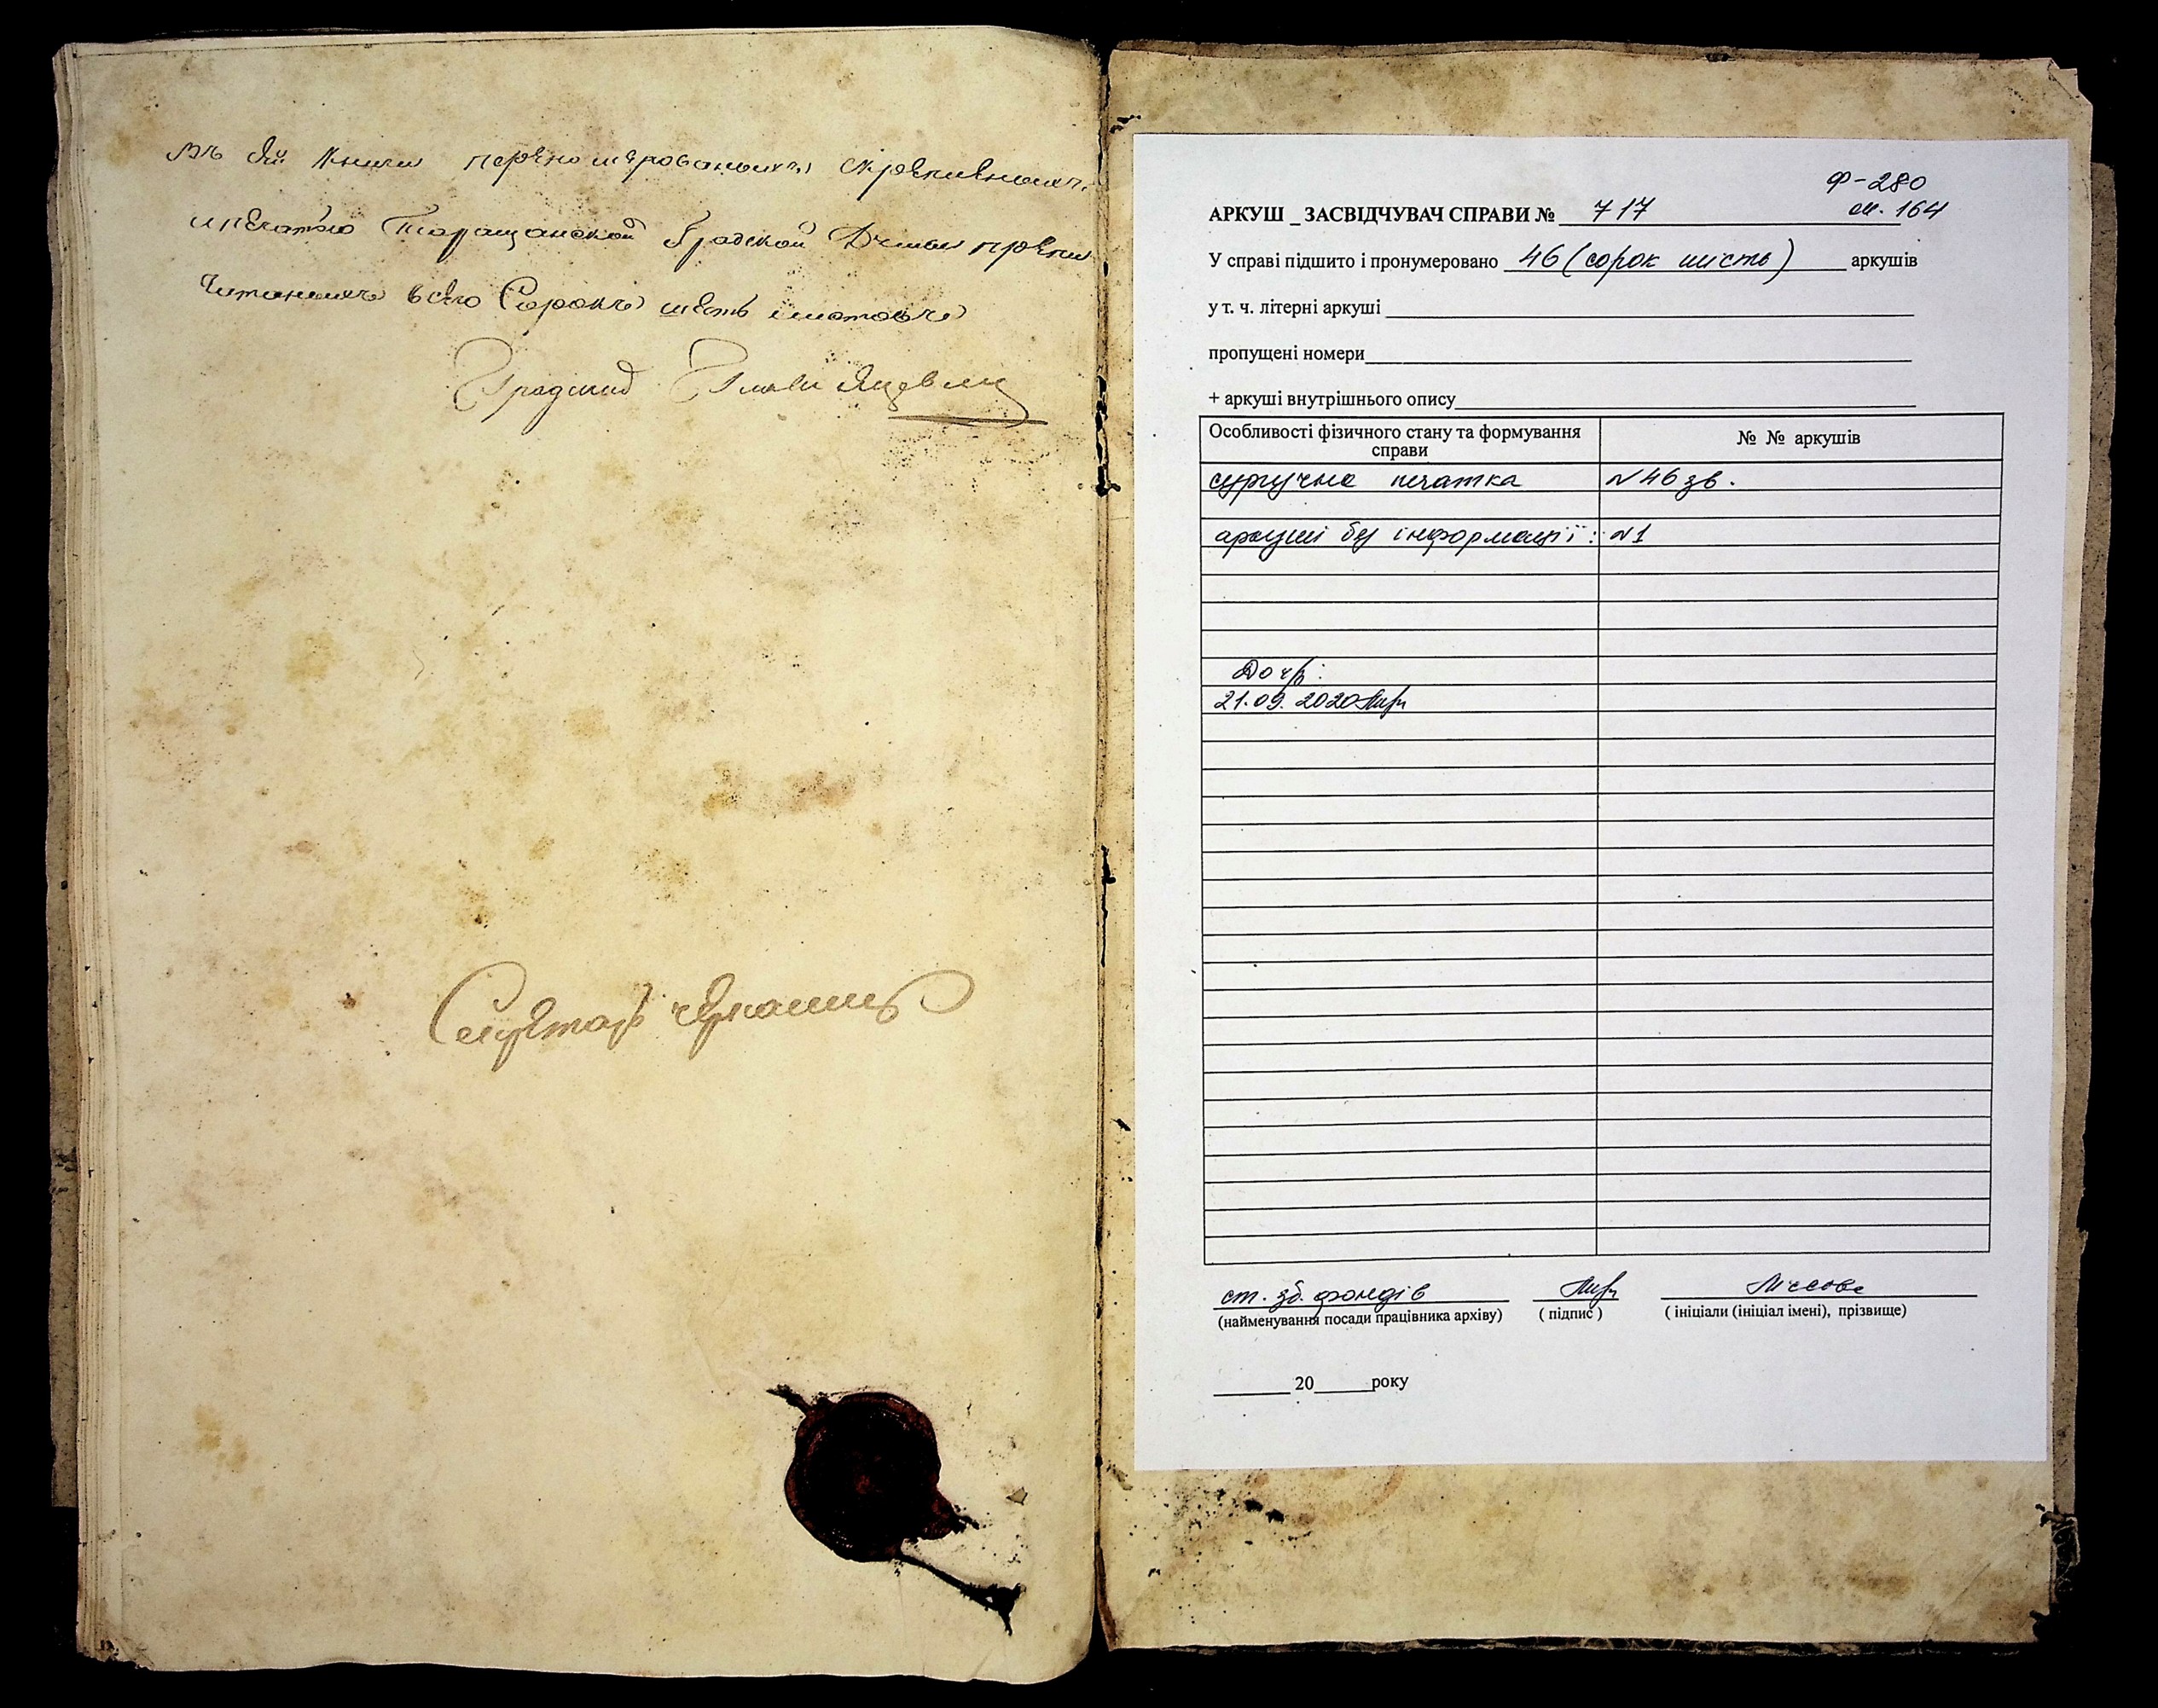 Въ сей Книги перенумерованныхъ скрепленныхъ
и печатью Таращанской Градской Думы
всего Сорокъ шесть листовъ
Градский Глава Яцевич
Секретарь
Ф-280
АРКУШ _ ЗАСВІДЧУВАЧ СПРАВИ № 717 оп. 164
У справі підшито і пронумеровано 46 (сорок шість) аркушів
у т. ч. літерні аркуші
пропущені номери
+ аркуші внутрішнього опису
Особливості фізичного стану та формування справи
№ № аркушів
сургучна печатка N 46 зв.
аркуші без інформації: N 1
21.09.2020
ст. зб. фондів
(найменування посади працівника архіву) ( підпис ) ( ініціали (ініціал імені), прізвище)
20 року